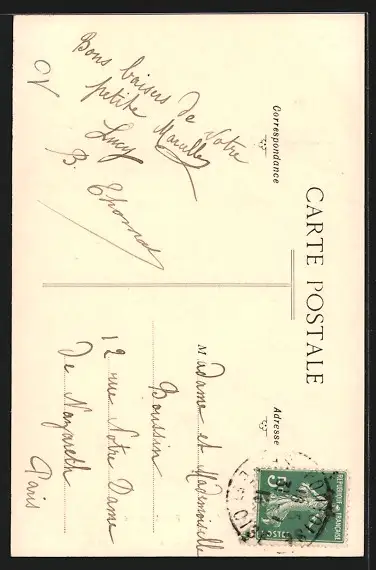 CARTE POSTALE
Correspondance
Adresse
Bons baisers de votre
petite Marcelle
Lucy
B. Thomas
Madame et Mademoiselle
Boussin
12 rue Notre Dame
De Nazareth
Paris
RÉPUBLIQUE FRANÇAISE
5
POSTES